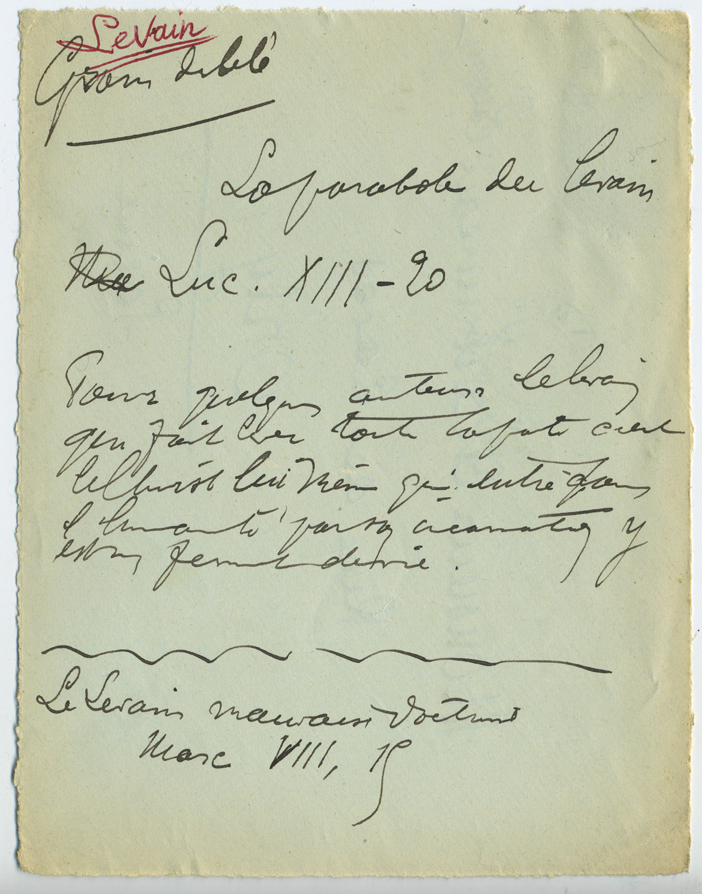 Levain
Grain de blé
La parabole du levain
Luc. XIII - 20
Pour quelques auteurs le levain
qui fait lever toute la pate c'est
le Christ lui même qui entré dans
l'humanité par son incarnation y
est un ferment de vie.
Le Levain mauvaise doctrine
Marc VIII, 15